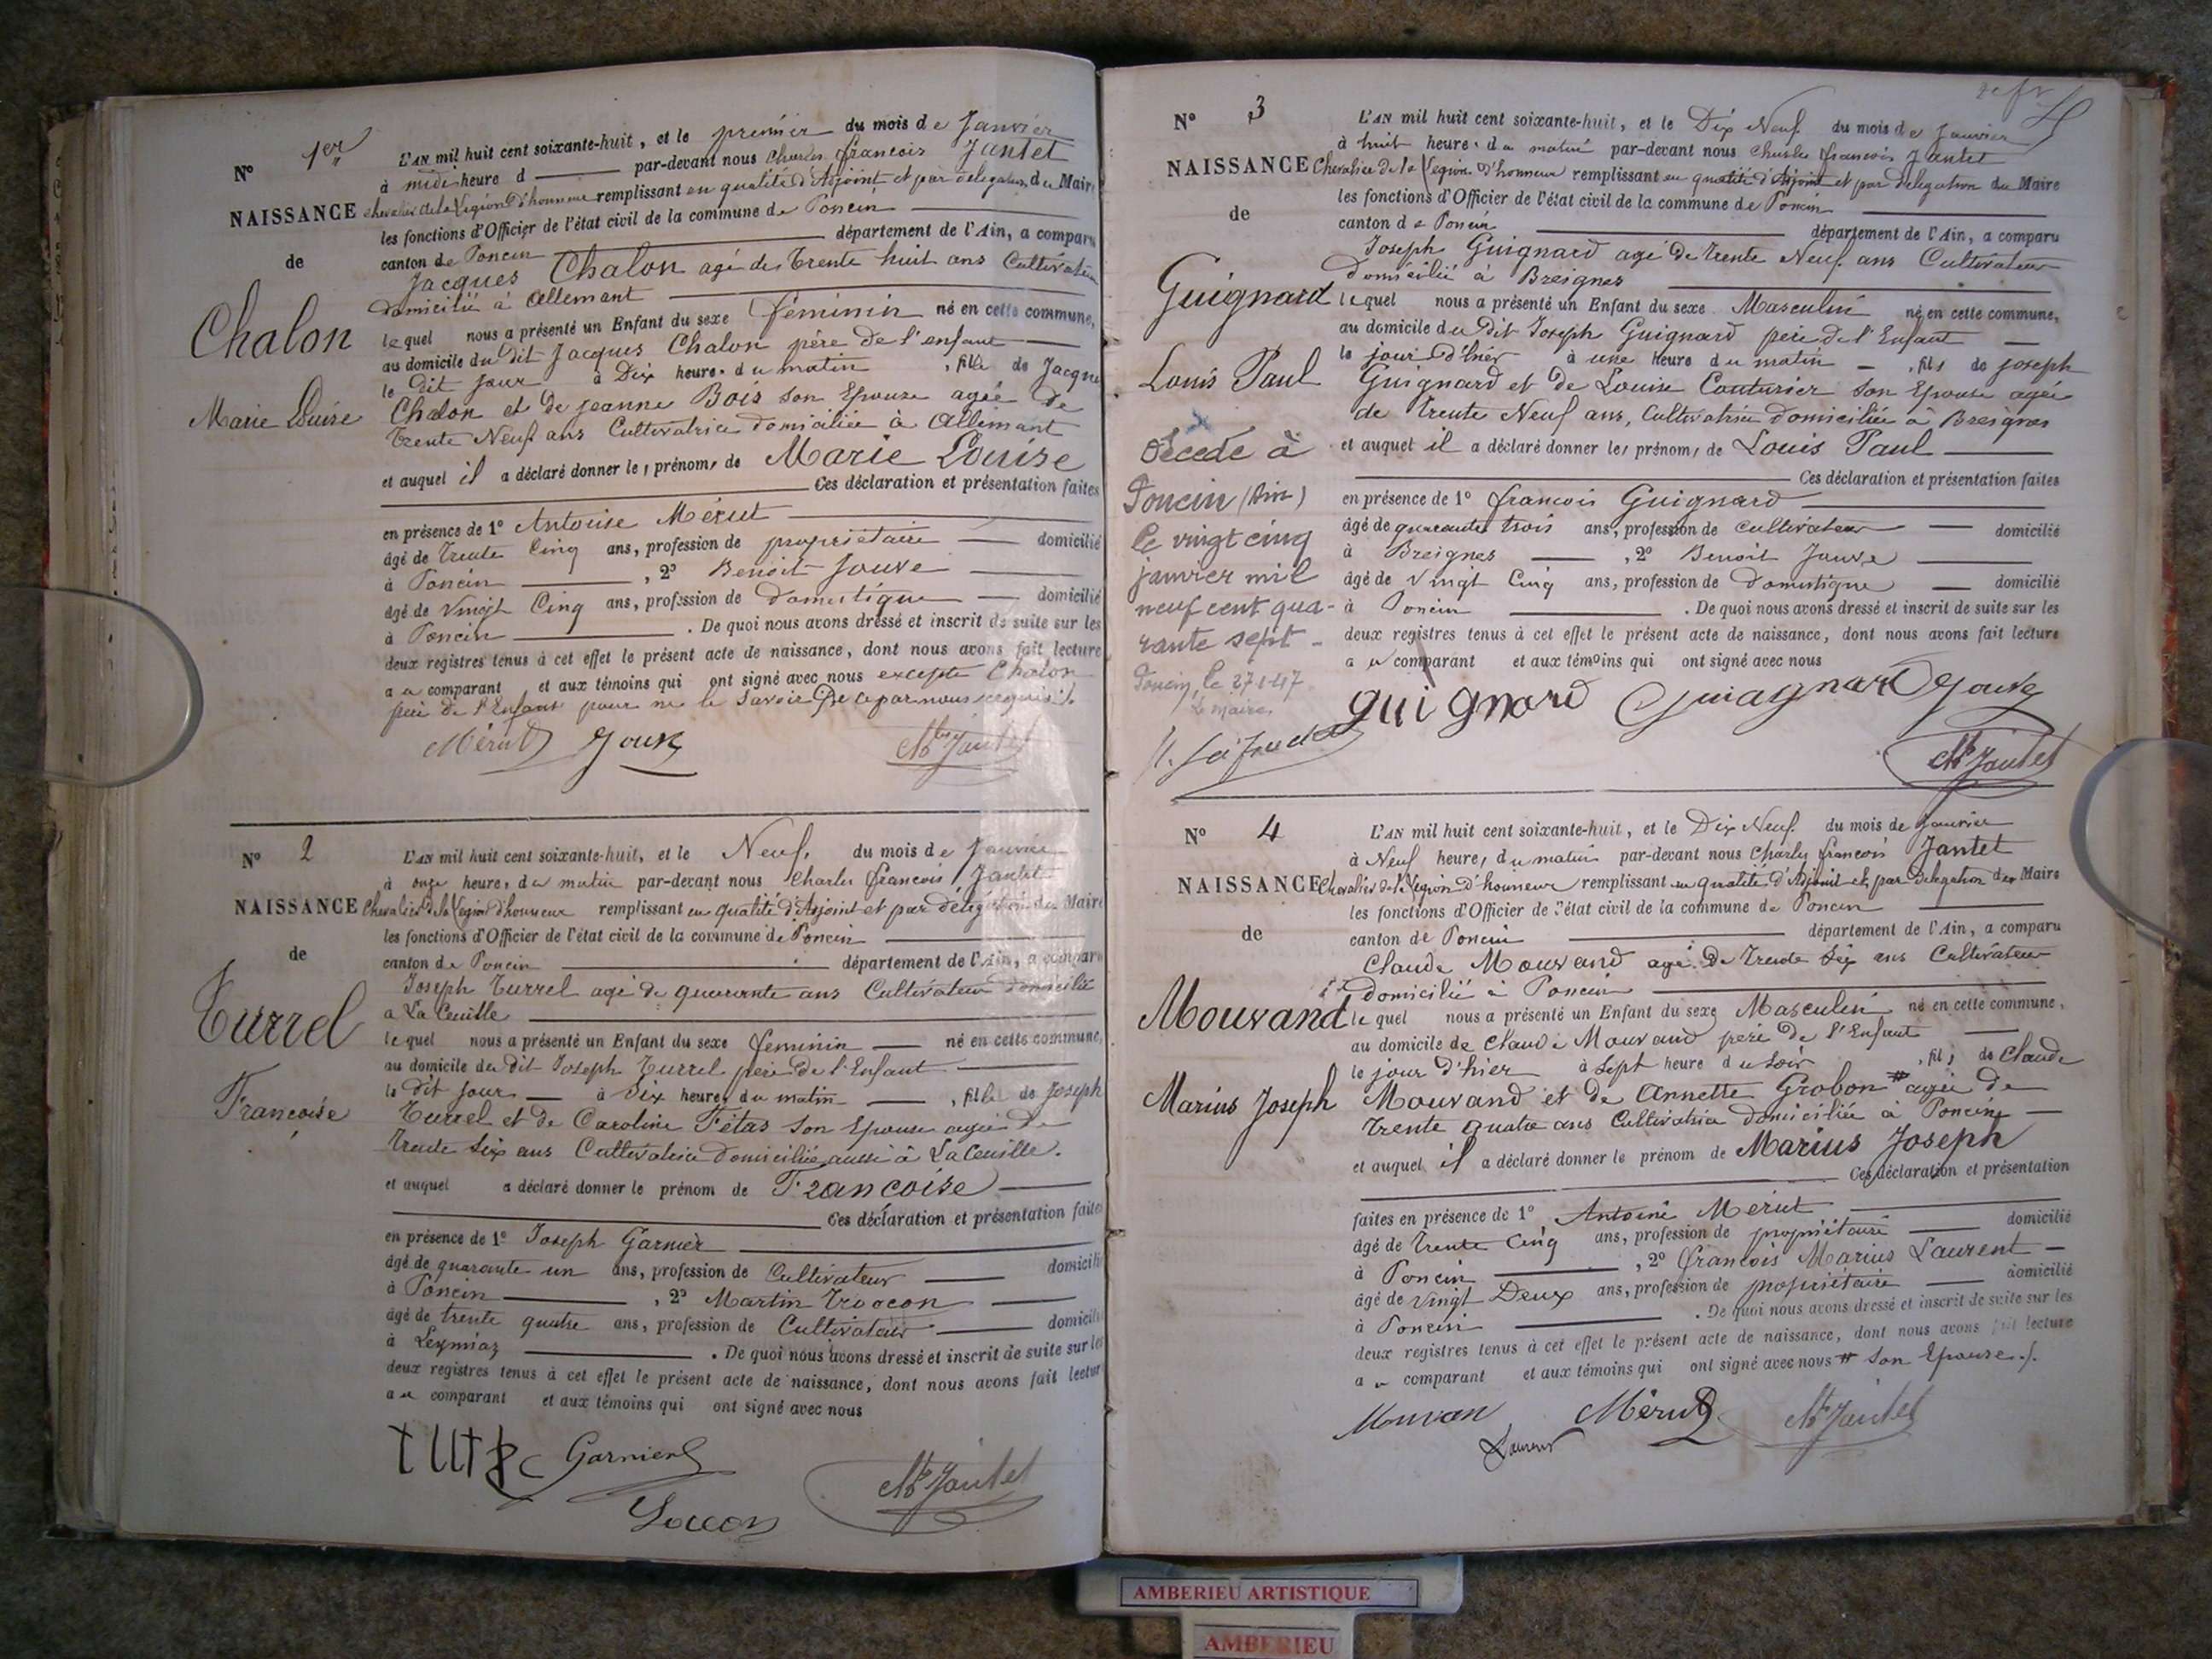 Nº 1er
NAISSANCE
de
Chalon
Marie Louise
L'AN mil huit cent soixante-huit, et le premier du mois de Janvier
à midi heure d par-devant nous Charles françois Jantet
chevalier de la Légion d'honneur remplissant en qualité d'Adjoint et par délégation du Maire
les fonctions d'Officier de l'état civil de la commune de Poncin
canton de Poncin département de l'Ain, a comparu
Jacques Chalon agé de Trente huit ans Cultivateur
domicilié à Allement
lequel nous a présenté un Enfant du sexe féminin né en cette commune,
au domicile du dit Jacques Chalon père de l'enfant
le dit jour à Dix heure. du matin , fille de Jacque
Chalon et de jeanne Bois son Epouse agée de
trente Neuf ans Cultivatrice domiciliée à Allemant
et auquel il a déclaré donner les prénoms de Marie Louise
Ces déclaration et présentation faites
en présence de 1º Antoine Mérut
âgé de trente Cinq ans, profession de propriétaire domicilié
à Poncin , 2º Benoit Jouve
âgé de Vingt Cinq ans, profession de domestique domicilié
à Poncin . De quoi nous avons dréssé et inscrit de suite sur les
deux registres tenus à cet effet le présent acte de naissance, dont nous avons fait lecture
au comparant et aux témoins qui ont signé avec nous excepté Chalon
père de l'Enfant pour ne le Savoir De ce par nous requis ./.
Mérut Jouve Jantet
Nº 2
NAISSANCE
de
Turrel
Françoise
L'AN mil huit cent soixante-huit, et le Neuf. du mois de Janvier
à onze heure, du matin par-devant nous Charles françois Jantet
Chevalier de la Légion d'honneur remplissant en qualité d'Adjoint et par délégation du Maire
les fonctions d'Officier de l'état civil de la commune de Poncin
canton de Poncin département de l'Ain, a comparu
Joseph Turrel agé de quarante ans Cultivateur domicilié
a La Ceuille
lequel nous a présenté un Enfant du sexe féminin né en cette commune,
au domicile du dit Joseph Turrel père de l'Enfant
le dit jour à Six heures du matin , fille de Joseph
Turrel et de Caroline Fétas Son Epouse agée de
trente Six ans Cultivatrice domiciliée aussi à La Ceuille.
et auquel a déclaré donner le prénom de Françoise
Ces déclaration et présentation faites
en présence de 1º Joseph Garnier
âgé de quarante un ans, profession de Cultivateur domicilié
à Poncin , 2º Martin
âgé de trente quatre ans, profession de Cultivateur domicilié
à Leymiaz . De quoi nous avons dressé et inscrit de suite sur les
deux registres tenus à cet effet le présent acte de naissance, dont nous avons fait lecture
au comparant et aux témoins qui ont signé avec nous
Garnier
Jantet
Nº 3
NAISSANCE
de
Guignard
Louis Paul
Décédé à
Poncin (Ain)
le vingt cinq
janvier mil
neuf cent qua-
rante sept -
Poncin, le 27-1-47
Le maire,
L'AN mil huit cent soixante-huit, et le Dix Neuf du mois de Janvier
à huit heure. du matin par-devant nous Charles françois Jantet
Chevalier de la Légion d'honneur remplissant en qualité d'Adjoint et par délégation du Maire
les fonctions d'Officier de l'état civil de la commune de Poncin
canton de Poncin département de l'Ain, a comparu
Joseph Guignard agé de trente Neuf. ans Cultivateur
domicilié à Breignes
lequel nous a présenté un Enfant du sexe Masculin né en cette commune,
au domicile du dit Joseph Guignard père de l'Enfant
le jour d'hier à une heure du matin , fils de joseph
Guignard et de Louise Couturier son Epouse agée
de trente Neuf ans, Cultivatrice domiciliée à Breignes
et auquel il a déclaré donner les prénoms de Louis Paul
Ces déclaration et présentation faites
en présence de 1º françois Guignard
âgé de quarante trois ans, profession de cultivateur domicilié
à Breignes , 2º Benoit Jouve
âgé de Vingt Cinq ans, profession de domestique domicilié
à Poncin . De quoi nous avons dressé et inscrit de suite sur les
deux registres tenus à cet effet le présent acte de naissance, dont nous avons fait lecture
au comparant et aux témoins qui ont signé avec nous
guignard Guiagnard Jouve
Jantet
Nº 4
NAISSANCE
de
Mouvand
Marius Joseph
L'AN mil huit cent soixante-huit, et le Dix Neuf. du mois de Janvier
à Neuf heure, du matin par-devant nous Charles françois Jantet
Chevalier de la Légion d'honneur remplissant en qualité d'Adjoint et par délégation du Maire
les fonctions d'Officier de l'état civil de la commune de Poncin
canton de Poncin département de l'Ain, a comparu
Claude Mouvand agé de trente Six ans Cultivateur
domicilié à Poncin
lequel nous a présenté un Enfant du sexe Masculin né en cette commune,
au domicile de Claude Mouvand père de l'Enfant
le jour d'hier à Sept heure du Soir , fils de Claude
Mouvand et de Annette Grobon # agée de
trente quatre ans Cultivatrice domiciliée à Poncin
et auquel il a déclaré donner le prénom de Marius Joseph
Ces déclaration et présentation
faites en présence de 1º Antoine Mérut
âgé de trente Cinq ans, profession de propriétaire domicilié
à Poncin , 2º françois Marius Laurent
âgé de Vingt Deux ans, profession de propriétaire domicilié
à Poncin . De quoi nous avons dressé et inscrit de suite sur les
deux registres tenus à cet effet le présent acte de naissance, dont nous avons fait lecture
au comparant et aux témoins qui ont signé avec nous # Son Epouse ./.
Mouvan Mérut Jantet
Laurent
AMBERIEU ARTISTIQUE
AMBERIEU